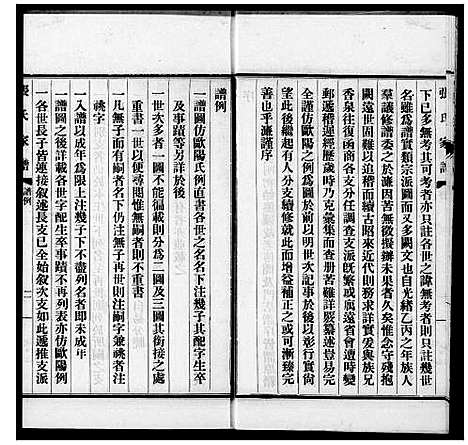 張氏家譜
下已多無考其可考者亦只註各世之諱無考者則只註幾世
名雖為譜實類宗派圖而又多闕文也自光緒乙丙之年族人
羣議修譜委之於濂因苦無徵倣擱辦未果者久矣惟念守殘抱
闕遠世固難以追稽而續古昭來近代則務求詳實爰與族兄
香泉往復函商各支分任調查支派旣繁或寓遠省會遭時變
郵遞稽遲經歷歲時乃克彙集而查册苦難詳覈纂述豈易完
全謹仿歐陽之例為圖於前以明世次記事於後以彰行實尙
望此後繼起有人分支續修就此而增益補正之或可漸臻完
善也乎濂謹序
譜例
一譜圖仿歐陽氏例直書各世之名名下注幾子其配字生卒
及事蹟等另詳於後
一世次多者一圖不能徧載則分為二圖及三圖其銜接之處
重書一世以便尋閱惟無嗣者則不重書
一凡無子而有嗣者名下仍注無子再世則注嗣字兼祧者注
祧字
一入譜以成年為限上注幾子下不盡列名者即未成年
一譜圖之後詳載各世字配生卒事蹟不再列表亦仿歐陽例
一各世長子皆連接叙述長支已全始叙次支如此遞推支派
張氏家譜
譜例